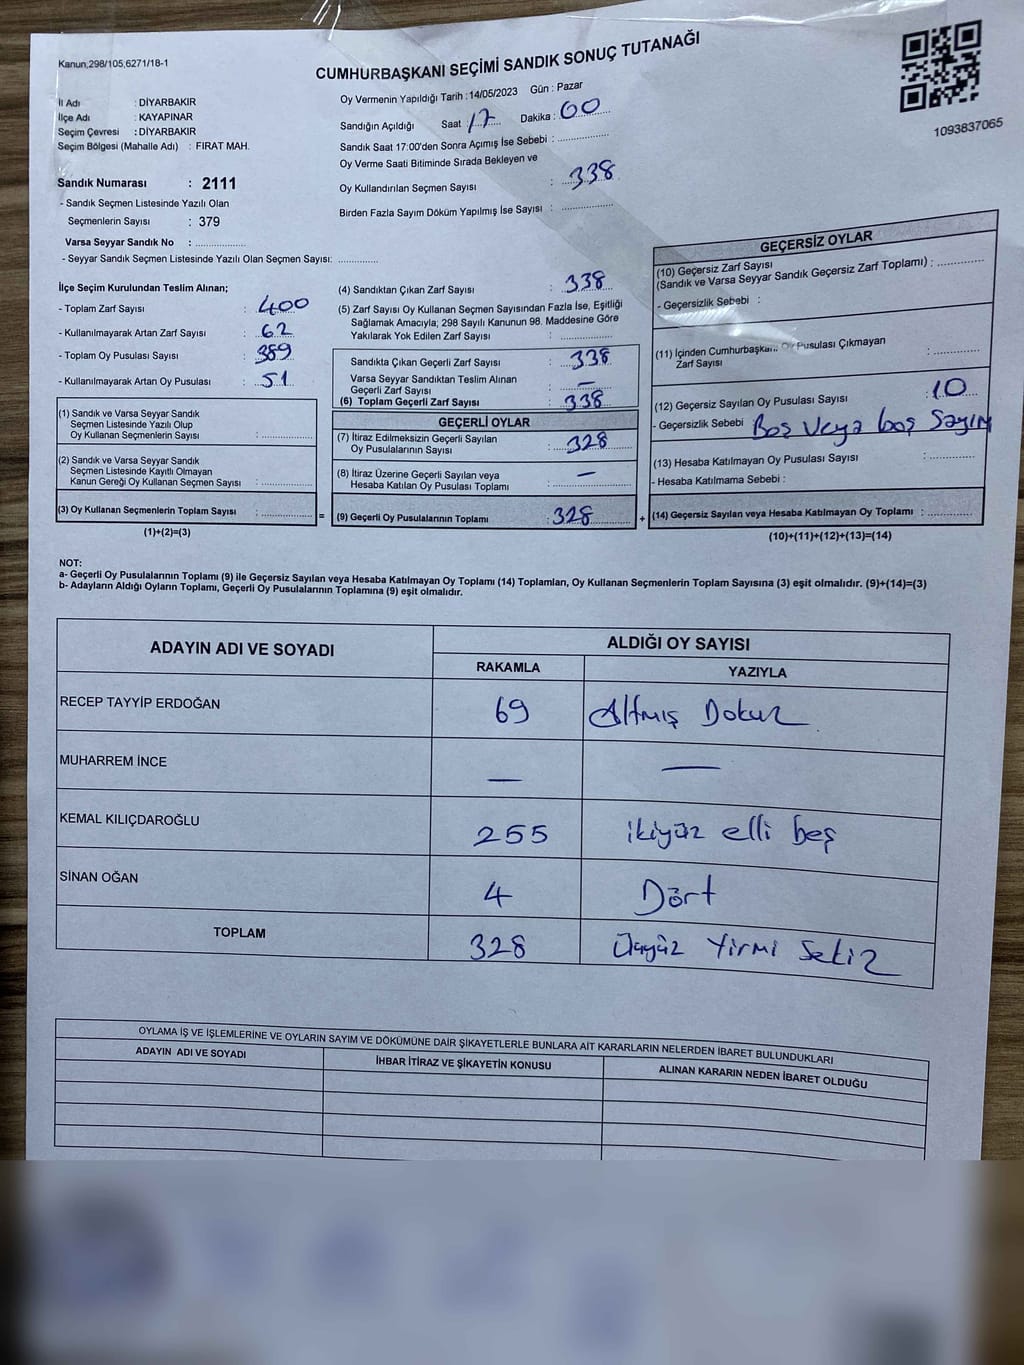 Kanun,298/105,6271/18-1
CUMHURBAŞKANI SEÇİMİ SANDIK SONUÇ TUTANAĞI
1093837065
İl Adı : DİYARBAKIR
İlçe Adı : KAYAPINAR
Seçim Çevresi : DİYARBAKIR
Seçim Bölgesi (Mahalle Adı) : FIRAT MAH.
Sandık Numarası : 2111
- Sandık Seçmen Listesinde Yazılı Olan
Seçmenlerin Sayısı : 379
Varsa Seyyar Sandık No : ................
- Seyyar Sandık Seçmen Listesinde Yazılı Olan Seçmen Sayısı: .............
Oy Vermenin Yapıldığı Tarih :14/05/2023 Gün : Pazar
Sandığın Açıldığı Saat : 17 Dakika : 00
Sandık Saat 17:00'den Sonra Açımış İse Sebebi : ................
Oy Verme Saati Bitiminde Sırada Bekleyen ve
Oy Kullandırılan Seçmen Sayısı : 338
Birden Fazla Sayım Döküm Yapılmış İse Sayısı : ................
İlçe Seçim Kurulundan Teslim Alınan;
- Toplam Zarf Sayısı : 400
- Kullanılmayarak Artan Zarf Sayısı : 62
- Toplam Oy Pusulası Sayısı : 389
- Kullanılmayarak Artan Oy Pusulası : 51
(1) Sandık ve Varsa Seyyar Sandık
Seçmen Listesinde Yazılı Olup
Oy Kullanan Seçmenlerin Sayısı : ................
(2) Sandık ve Varsa Seyyar Sandık
Seçmen Listesinde Kayıtlı Olmayan
Kanun Gereği Oy Kullanan Seçmen Sayısı : ................
(3) Oy Kullanan Seçmenlerin Toplam Sayısı : ................ =
(1)+(2)=(3)
(4) Sandıktan Çıkan Zarf Sayısı : 338
(5) Zarf Sayısı Oy Kullanan Seçmen Sayısından Fazla İse, Eşitliği
Sağlamak Amacıyla; 298 Sayılı Kanunun 98. Maddesine Göre
Yakılarak Yok Edilen Zarf Sayısı : ................
Sandıkta Çıkan Geçerli Zarf Sayısı : 338
Varsa Seyyar Sandıktan Teslim Alınan
Geçerli Zarf Sayısı : —
(6) Toplam Geçerli Zarf Sayısı : 338
GEÇERLİ OYLAR
(7) İtiraz Edilmeksizin Geçerli Sayılan
Oy Pusulalarının Sayısı : 328
(8) İtiraz Üzerine Geçerli Sayılan veya
Hesaba Katılan Oy Pusulası Toplamı : —
(9) Geçerli Oy Pusulalarının Toplamı : 328 +
GEÇERSİZ OYLAR
(10) Geçersiz Zarf Sayısı
(Sandık ve Varsa Seyyar Sandık Geçersiz Zarf Toplamı) : ................
- Geçersizlik Sebebi :
(11) İçinden Cumhurbaşkanı Oy Pusulası Çıkmayan
Zarf Sayısı : ................
(12) Geçersiz Sayılan Oy Pusulası Sayısı : 10
- Geçersizlik Sebebi Boş veya boş Sayım
(13) Hesaba Katılmayan Oy Pusulası Sayısı : ................
- Hesaba Katılmama Sebebi :
(14) Geçersiz Sayılan veya Hesaba Katılmayan Oy Toplamı : ................
(10)+(11)+(12)+(13)=(14)
NOT:
a- Geçerli Oy Pusulalarının Toplamı (9) ile Geçersiz Sayılan veya Hesaba Katılmayan Oy Toplamı (14) Toplamları, Oy Kullanan Seçmenlerin Toplam Sayısına (3) eşit olmalıdır. (9)+(14)=(3)
b- Adayların Aldığı Oyların Toplamı, Geçerli Oy Pusulalarının Toplamına (9) eşit olmalıdır.
ADAYIN ADI VE SOYADI ALDIĞI OY SAYISI
RAKAMLA YAZIYLA
RECEP TAYYİP ERDOĞAN 69 Altmış Dokuz
MUHARREM İNCE — —
KEMAL KILIÇDAROĞLU 255 ikiyüz elli beş
SİNAN OĞAN 4 Dört
TOPLAM 328 Üçyüz Yirmi Sekiz
OYLAMA İŞ VE İŞLEMLERİNE VE OYLARIN SAYIM VE DÖKÜMÜNE DAİR ŞİKAYETLERLE BUNLARA AİT KARARLARIN NELERDEN İBARET BULUNDUKLARI
ADAYIN ADI VE SOYADI İHBAR İTİRAZ VE ŞİKAYETİN KONUSU ALINAN KARARIN NEDEN İBARET OLDUĞU